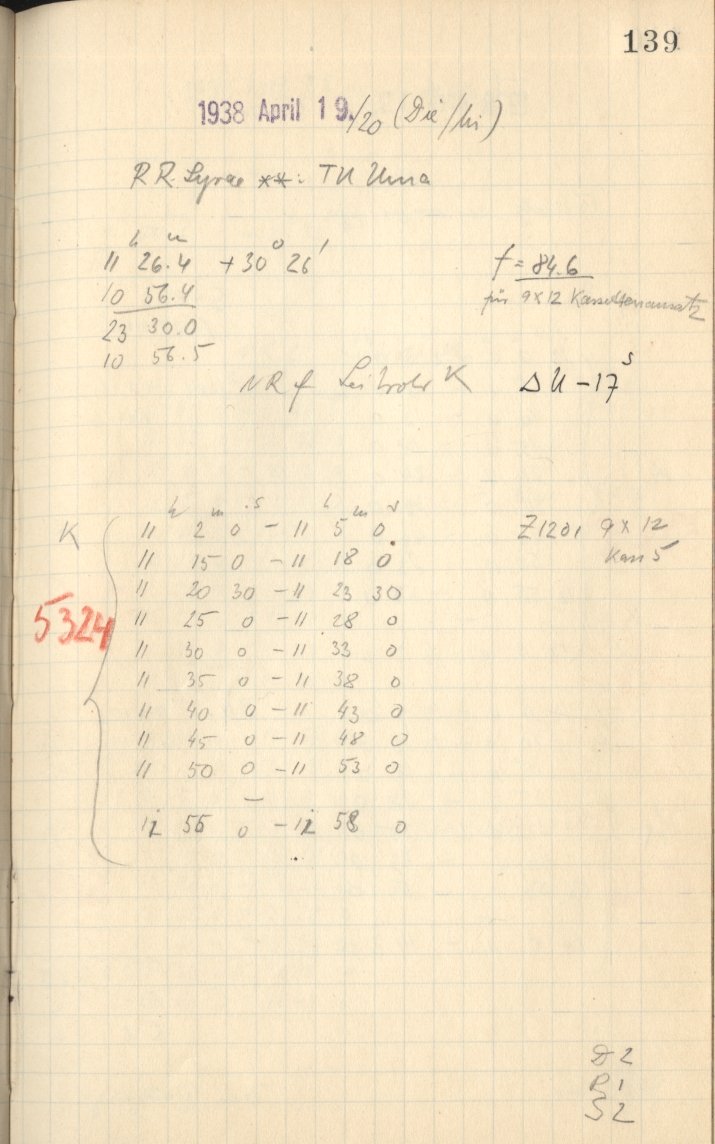 139
1938 April 19./20 (Die/Mi)
RR Lyrae **: TU Uma
h m o '
11 26.4 +30 26
f = 84.6
10 56.4
für 9x12 Kassettenansatz
23 30.0
10 56.5
NR f Leitrohr K ΔU -17 s
h m s h m s
K 11 2 0 - 11 5 0 Z1201 9 x 12
11 15 0 - 11 18 0 Kass 5
11 20 30 - 11 23 30
5324 11 25 0 - 11 28 0
11 30 0 - 11 33 0
11 35 0 - 11 38 0
11 40 0 - 11 43 0
11 45 0 - 11 48 0
11 50 0 - 11 53 0
55 0 - 58 0
D 2
R 1
S 2